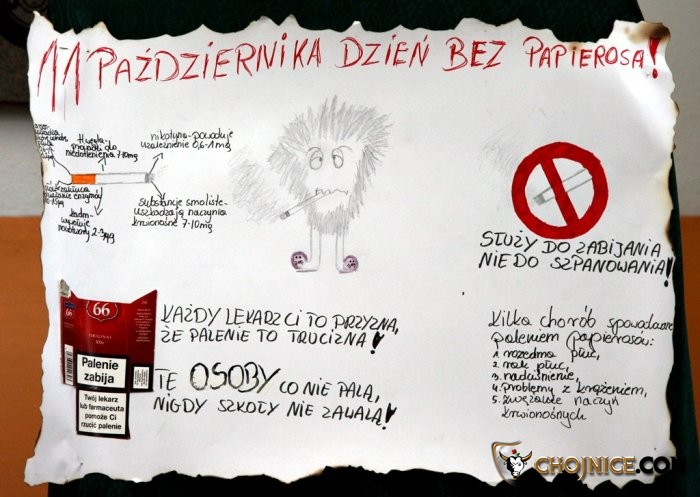 11 PAŹDZIERNIKA DZIEŃ BEZ PAPIEROSA!
tlwęgla-
prowadzi do
niedotlenienia 7-10mg
nikotyna-powoduje
uzależnienie 0,6-1mg
substancje smoliste-
uszkadzają naczynia
krwionośne 7-10mg
kadm-
wywołuje
2-3µg
SŁUŻY DO ZABIJANIA
NIE DO SZPANOWANIA!
66
66
ORIGINAL
Palenie
zabija
Twój lekarz
lub farmaceuta
pomoże Ci
rzucić palenie
KAŻDY LEKARZ CI TO PRZYZNA,
ŻE PALENIE TO TRUCIZNA!
TE OSOBY CO NIE PALĄ,
NIGDY SZKOŁY NIE ZAWALĄ!
Kilka chorób spowodowane
paleniem papierosów:
1. rozedma płuc,
2. rak płuc,
3. nadciśnienie,
4. problemy z krążeniem,
5. zwężenie naczyń
krwionośnych
CHOJNICE.CO